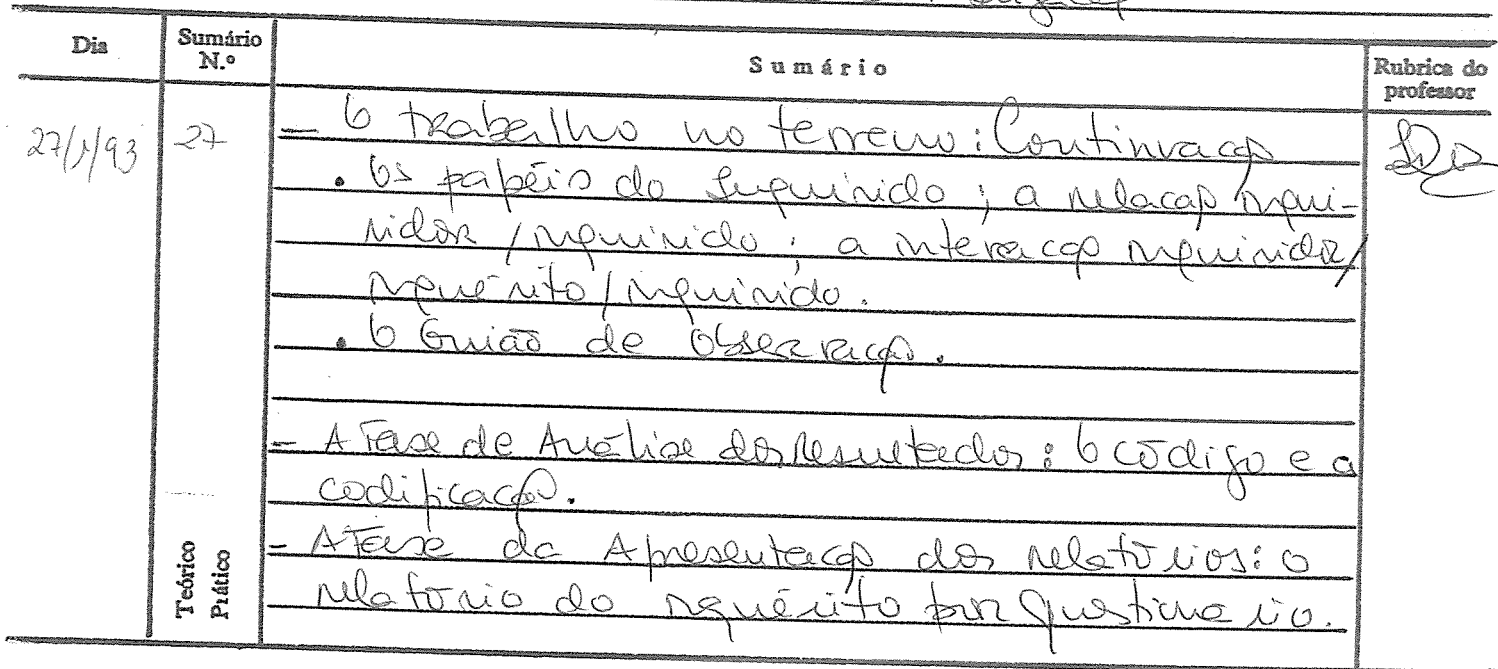 Dia
Sumário N.º
Sumário
Rubrica do professor
27/1/93 27
- O trabalho no terreno: Continuação
. Os papéis do Inquirido; a relação inqui-
ridor/inquirido; a interacção inquiridor/
inquérito/inquirido.
. O Guião de Observação.
- A Fase de Análise dos resultados: O código e a
codificação.
- A Fase da Apresentação dos relatórios: o
relatório do inquérito por questionário.
Teórico
Prático